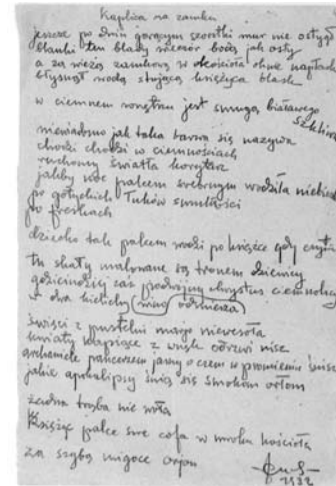 Kaplica na zamku
jeszcze po dniu gorącym szorstki mur nie ostygł
blanki ten blady wieczór bodą jak osty
a za wieżą zamkową w kościoła oknie
błysnął wodą stojącą księżyca blask
w ciemnem wnętrzu jest smuga białawego
niewiadomo jak taka barwa się nazywa
chodzi chodzi w ciemnościach
ruchomy światła korytarz
jakby noc palcem srebrnym wodziła
po gotyckich łuków smukłości
po freskach
dziecko tak palcem wodzi po książce gdy czyta
tu skały malowane są tronem
zaś podwójny chrystus
dwa kielichy wino
święci z pustelni mając niewesołą
kwiaty z
archaniele pancerzem jasny oczem w promieniu
jakie apokalipsy śnią się smokom orłom
żadna trąba nie woła
Księżyc palce swe cofa w mroku kościoła
za szybą migoce orjon
1932